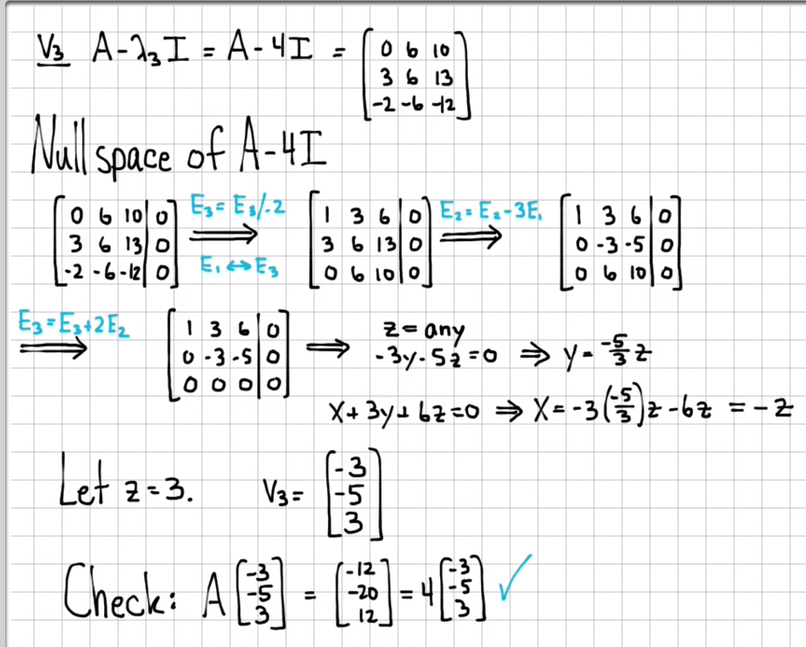 V₃ A-λ₃I = A-4I = [0 6 10; 3 6 13; -2 -6 -12]
Null space of A-4I
[0 6 10 | 0; 3 6 13 | 0; -2 -6 -12 | 0] E₃=E₃/-2 ⟹ E₁↔E₃ [1 3 6 | 0; 3 6 13 | 0; 0 6 10 | 0] E₂=E₂-3E₁ ⟹ [1 3 6 | 0; 0 -3 -5 | 0; 0 6 10 | 0]
E₃=E₃+2E₂ ⟹ [1 3 6 | 0; 0 -3 -5 | 0; 0 0 0 | 0] ⟹ z=any
-3y-5z=0 ⟹ y=-5/3 z
x+3y+6z=0 ⟹ x=-3(-5/3)z-6z = -z
Let z=3. V₃= [-3; -5; 3]
Check: A[-3; -5; 3] = [-12; -20; 12] = 4[-3; -5; 3] ✓